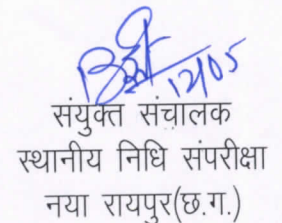 12/05
संयुक्त संचालक
स्थानीय निधि संपरीक्षा
नया रायपुर(छ.ग.)